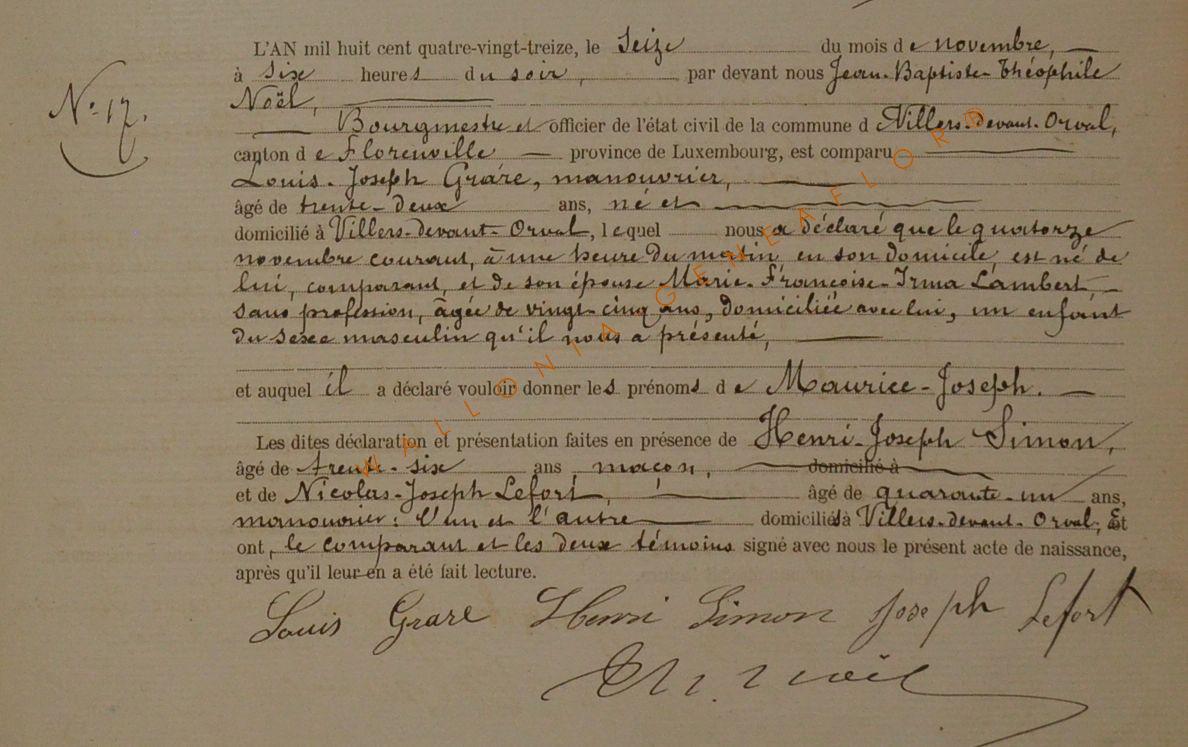 L'AN mil huit cent quatre-vingt-treize, le Seize du mois de novembre,
à six heures du soir, par devant nous Jean-Baptiste-Théophile
N° 17.
Noël,
Bourgmestre et officier de l'état civil de la commune d Villers-devant-Orval,
canton de Florenville province de Luxembourg, est comparu
Louis-Joseph Grare, manouvrier,
âgé de trente-deux ans, né et
domicilié à Villers-devant-Orval, lequel nous a déclaré que le quatorze
novembre courant, à une heure du matin en son domicile, est né de
lui, comparant, et de son épouse Marie-Françoise-Irma Lambert,
sans profession, âgée de vingt-cinq ans, domiciliée avec lui, un enfant
du sexe masculin qu'il nous a présenté,
et auquel il a déclaré vouloir donner les prénoms de Maurice-Joseph.
Les dites déclaration et présentation faites en présence de Henri-Joseph Simon,
âgé de trente-six ans, maçon, domicilié à
et de Nicolas-Joseph Lefort, âgé de quarante-un ans,
manouvrier; l'un et l'autre domiciliés à Villers-devant-Orval, Et
ont, le comparant et les deux témoins signé avec nous le présent acte de naissance,
après qu'il leur en a été fait lecture.
Louis Grare Henri Simon Joseph Lefort
Th. Noël
WALLONIA GENEAFLORD